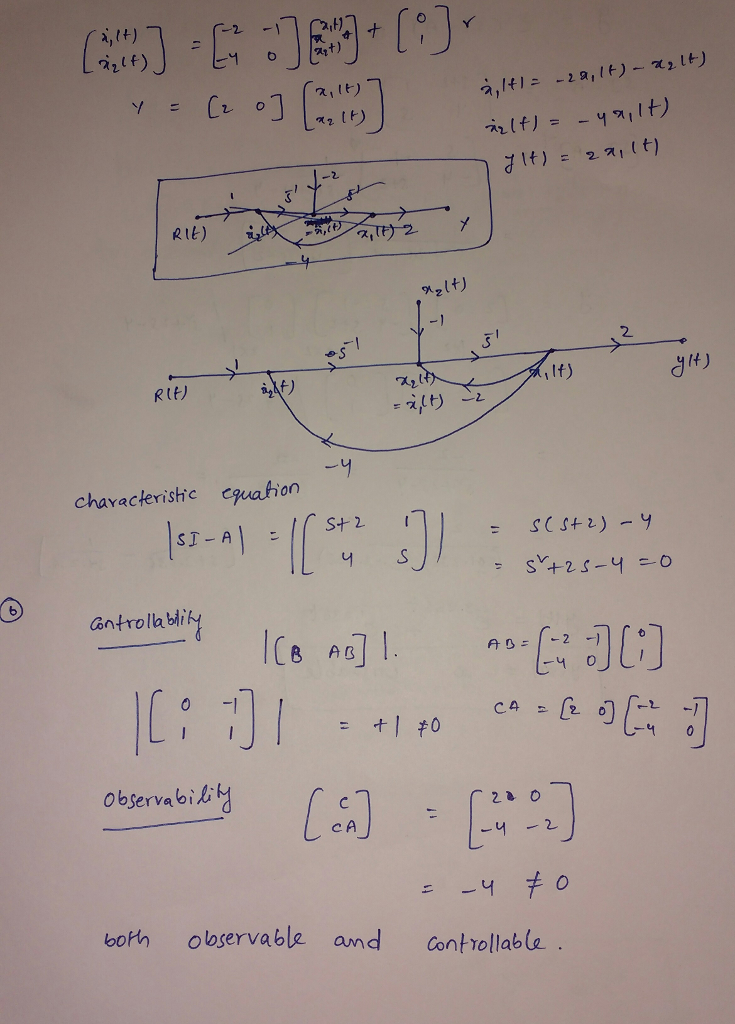 [ẋ₁(t) ẋ₂(t)] = [-2 -1 -4 0] [x₁(t) x₂(t)] + [0 1] r
Y = [2 0] [x₁(t) x₂(t)]
ẋ₁(t) = -2x₁(t) - x₂(t)
ẋ₂(t) = -4x₁(t)
y(t) = 2x₁(t)
-2
1 s⁻¹ s⁻¹
R(t) ẋ₂(t) = ẋ₁(t) x₁(t) 2 Y
-4
x₂(t)
-1
1 s⁻¹ s⁻¹ 2
R(t) ẋ₂(t) x₂(t) x₁(t) y(t)
= ẋ₁(t) -2
-4
characteristic equation
|SI-A| = |[S+2 1 4 S]| = S(S+2) - 4
= S²+2S-4 = 0
6
Controllability
|[B AB]|. AB = [-2 -1 -4 0] [0 1]
|[0 -1 1 1]| = +1 ≠0 CA = [2 0] [-2 -1 -4 0]
Observability
[C CA] = [2 0 -4 -2]
= -4 ≠ 0
both observable and controllable.